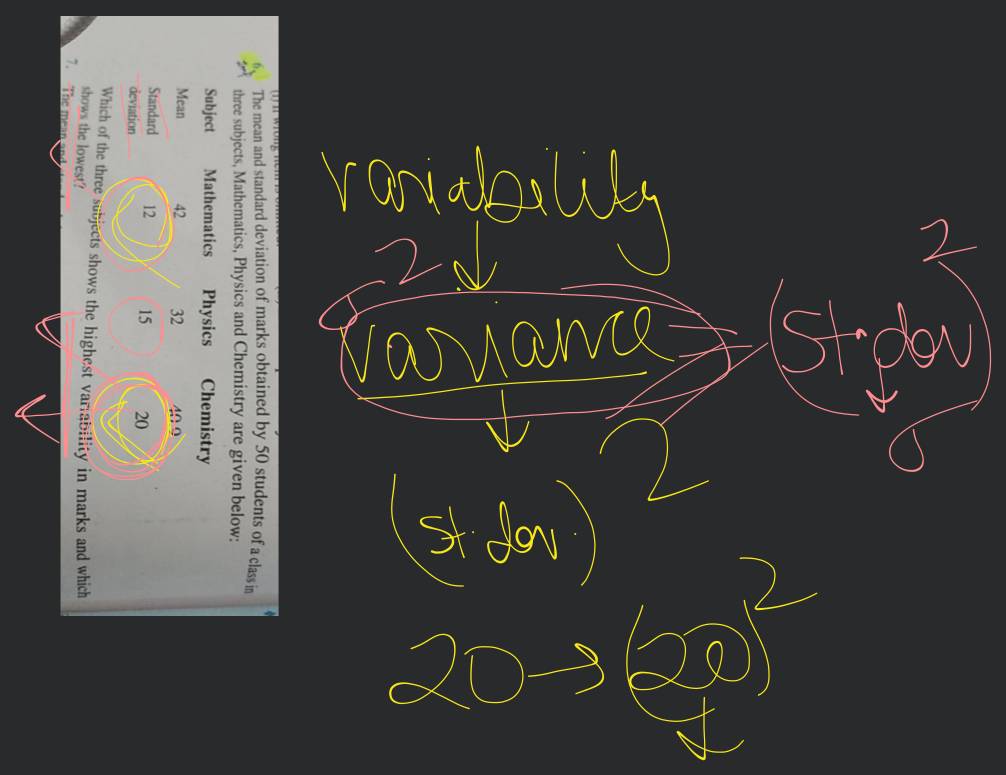 The mean and standard deviation of marks obtained by 50 students of a class in
three subjects, Mathematics, Physics and Chemistry are given below:
Subject Mathematics Physics Chemistry
Mean 42 32 40.9
Standard
deviation 12 15 20
Which of the three subjects shows the highest variability in marks and which
shows the lowest?
7. The mean and
variability
2
variance
2
(St. dev)
σ
2
(st. dev.)
20 → (20)
2